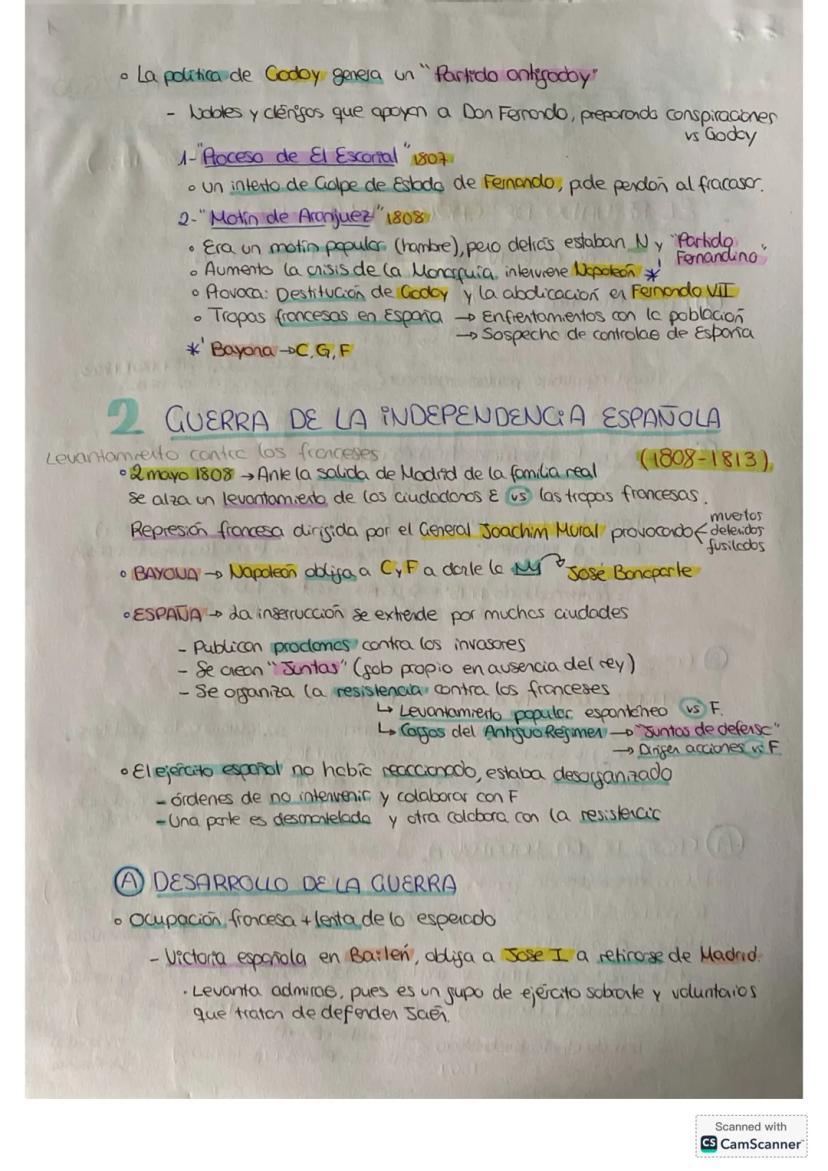 • La política de Godoy genera un "Partido antigodoy"
- Nobles y clérigos que apoyan a Don Fernando, preparando conspiraciones
vs Godoy
1- "Proceso de El Escorial" 1807
• Un intento de Golpe de Estado de Fernando, pide perdón al fracasar.
2- "Motín de Aranjuez" 1808
• Era un motín popular (hambre), pero detrás estaban N y "Partido
Fernandino"
• Aumento la crisis de la Monarquía, interviene Napoleón *'
• Provoca: Destitución de Godoy y la abdicación en Fernando VII
• Tropas francesas en España → Enfrentamientos con la población
→ Sospecha de controlar de España
*' Bayona → C, G, F
2 GUERRA DE LA INDEPENDENCIA ESPAÑOLA
(1808-1813)
Levantamiento contra los franceses
• 2 mayo 1808 → Ante la salida de Madrid de la familia real
se alza un levantamiento de los ciudadanos E vs las tropas francesas.
Represión francesa dirigida por el General Joachim Murat provocando < muertos
detenidos
fusilados
• BAYONA → Napoleón obliga a C y F a darle la → José Bonaparte
• ESPAÑA → La inserrucción se extiende por muchas ciudades
- Publican proclamas contra los invasores
- Se crean "Juntas" (gob propio en ausencia del rey)
- Se organiza la resistencia contra los franceses
↳ Levantamiento popular espontáneo vs F.
↳ Cargos del Antiguo Régimen → "Juntas de defensa"
→ Dirigen acciones vs F
• El ejército español no había reaccionado, estaba desorganizado
- órdenes de no intervenir y colaborar con F
- Una parte es desmantelada y otra colabora con la resistencia
A DESARROLLO DE LA GUERRA
• Ocupación francesa + lenta de lo esperado
- Victoria española en Bailén, obliga a Jose I a retirarse de Madrid.
· Levanta admirac, pues es un grupo de ejército sobrante y voluntarios
que tratan de defender Jaén.
Scanned with
CS CamScanner